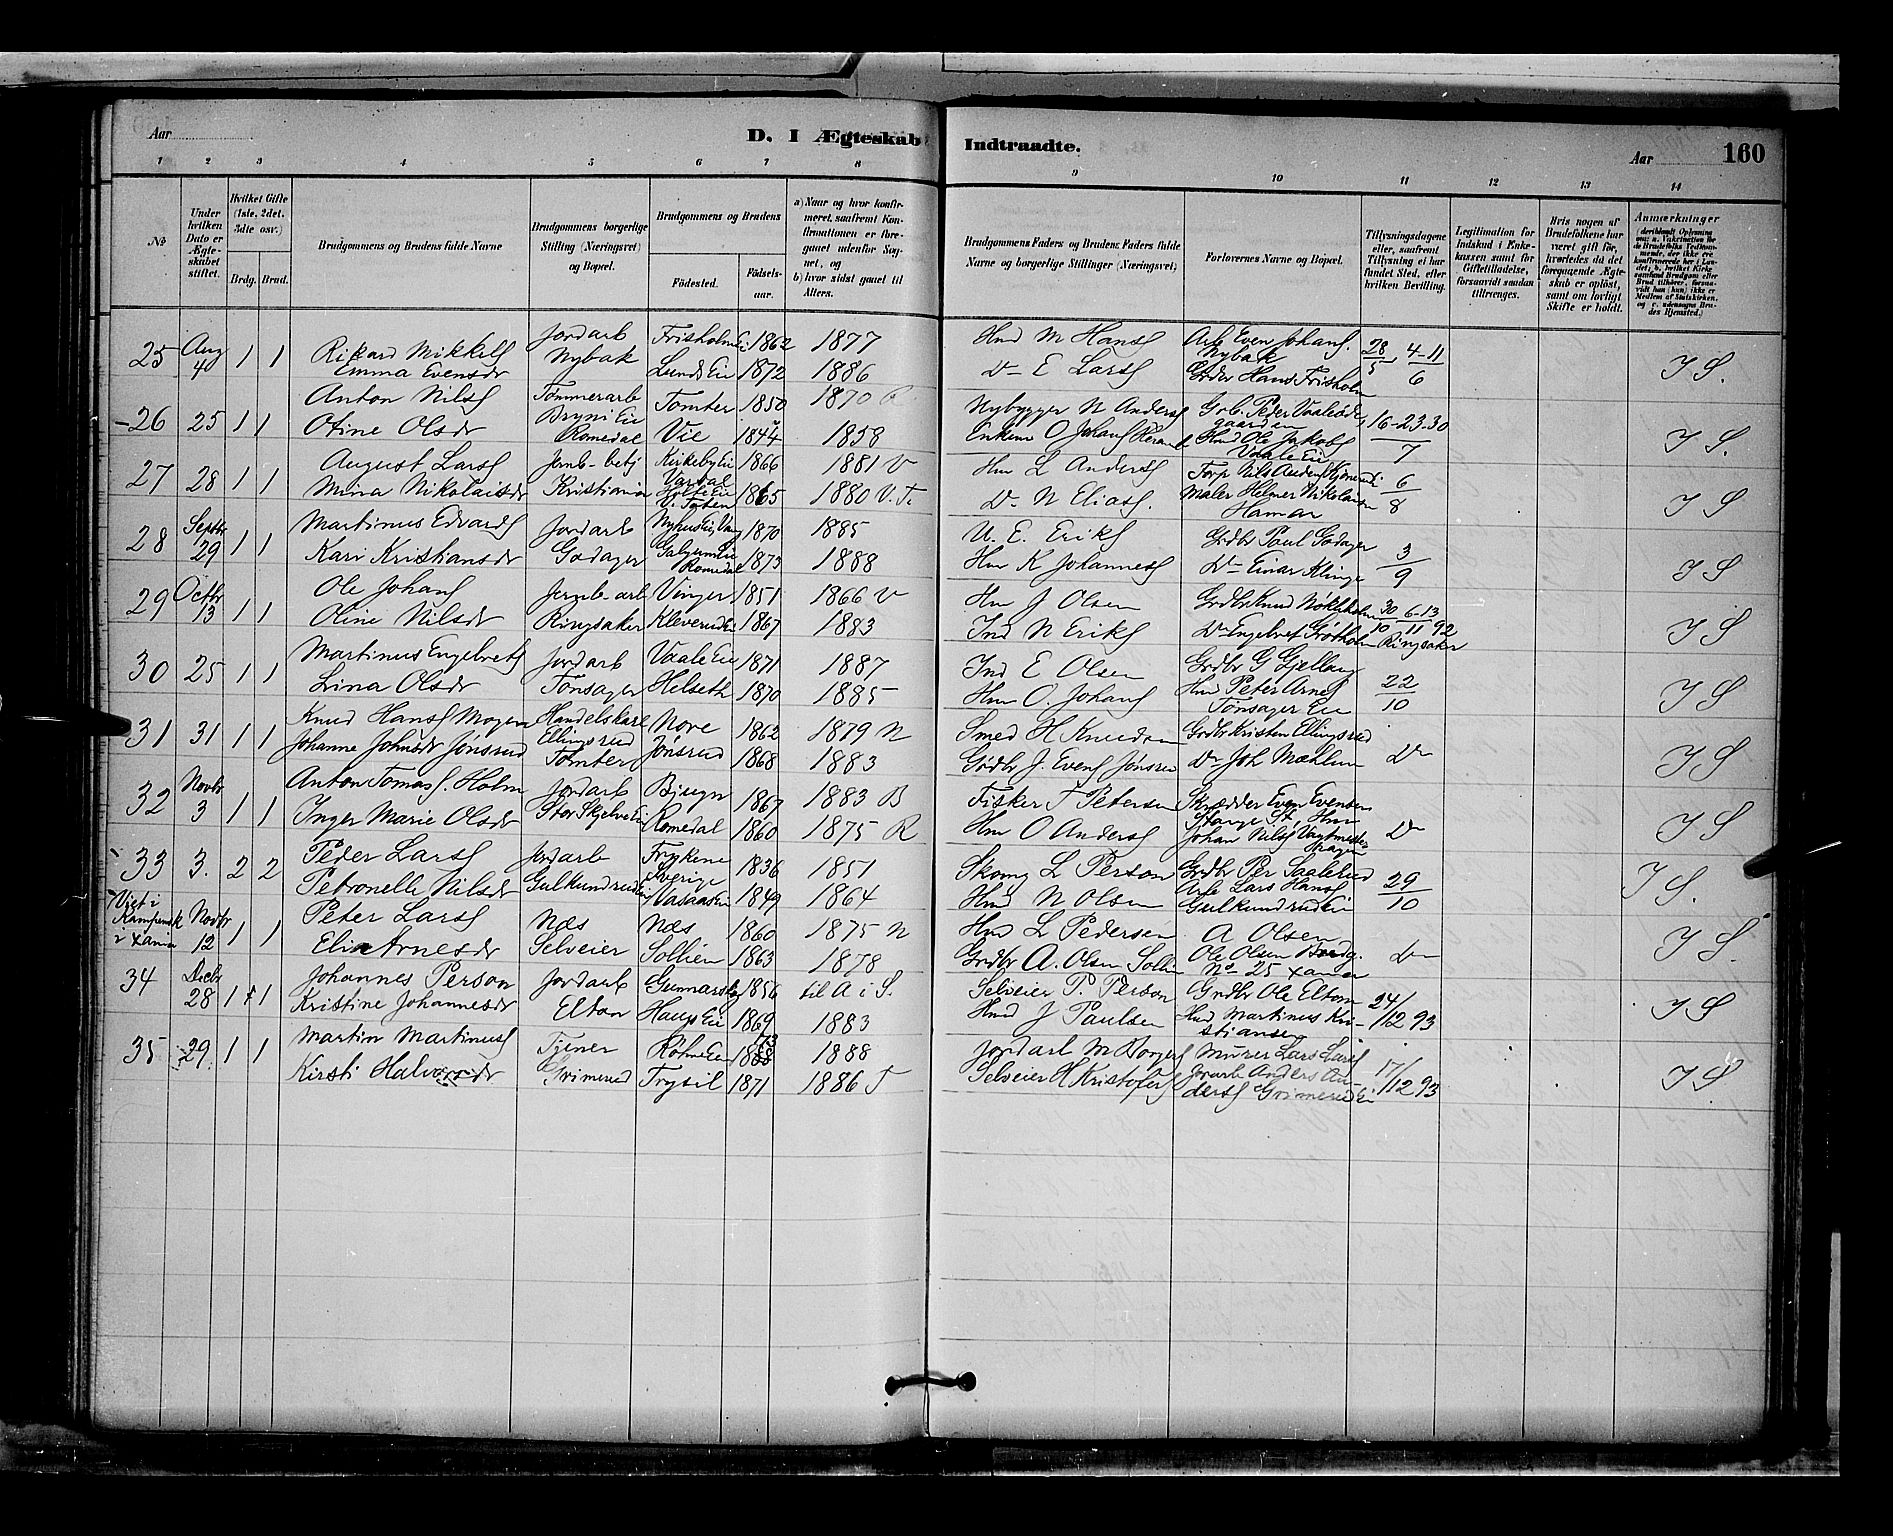 Aar
D. I Ægteskab
Indtraadte.
Aar
160
1 2 3 4 5 6 7 8 9 10 11 12 13 14
No
Under hvilken Dato er Ægteskabet stiftet.
Hvilket Gifte (1ste, 2det, 3die osv.)
Brdg. Brud.
Brudgommens og Brudens fulde Navne
Brudgommens borgerlige Stilling (Næringsvei) og Bopæl.
Brudgommens og Brudens
Fødested.
Fødselsaar.
a) Naar og hvor konfirmeret, saafremt Konfirmationen er foregaaet udenfor Sognet, og
b) hvor sidst gaaet til Alters.
Brudgommens Faders og Brudens Faders fulde Navne og borgerlige Stillinger (Næringsvei)
Forlovernes Navne og Bopæl.
Tillysningsdagene eller, saafremt Tillysning ei har fundet Sted, efter hvilken Bevilling.
Legitimation for Indskud i Enkekassen samt for Giftetilladelse, forsaavidt saadan tiltrænges.
Hvis nogen af Brudefolkene har været gift før, hvorledes da det foregaaende Ægteskab er opløst, samt om lovligt Skifte er holdt.
Anmærkninger
25 Aug 4 1 1 Rikard Mikkels Jordarb Frisholm Ei 1862 1877 Hmd M Hans Arb Even Johans. 28/5 4-11/6 J S.
Emma Evensdr Nybak Lunds Ei 1872 1886 D- E Lars Nybak Grdbr Hans Frisholm
26 25 1 1 Anton Nils Tømmerarb Tomter 1850 1870 R Nybygger N Anders Grb. Peder Vaalesde 16-23.30/7 J S.
Otine Olsdr Bryni Ei Romedal Vie 1844 1858 Enkem O Johans gaarden Hmd Ole Jakobs Vaale Ei
27 28 1 1 August Lars Jernb-betj Kirkeby Ei Vardal 1866 1881 V Hm L Anders Torp Nils Anders 6/8 J S
Mina Nikolaisdr Kristiania V. Toten 1865 1880 V.T. D- N Elias. Maler Helmer Nikolaisen Hamar
28 Septbr 29 1 1 Martinus Edvards Jordarb Nyhus Ei, Vang 1870 1885 U. E. Eriks Grdbr Paul Godager 3/9 J S
Kari Kristiansdr Godager Romedal 1873 1888 Hm K Johannes D- Einar Klinge
29 Octbr 13 1 1 Ole Johans Jernb-arb Vinger 1851 1866 V Hm J Olsen Grdbr Knud Nøkleholm 30/10 6-13/11 92 J S
Oline Nilsdr Ringsaker Kleverud Ei 1867 1883 Ind N Eriks D- Engelvet Grøtholm Ringsaker
30 25 1 1 Martinus Engelvets Jordarb Vaale Ei 1871 1887 Ind E Olsen Grdbr G Gjellang 22/10 J S
Lina Olsdr Tønsager Helseth 1870 1885 Hm O. Johans Hmd Peter Arnes Tønsager Ei
31 31 1 1 Knud Hans Mogen Handelskarl Nore 1862 1879 N Smed H Knudsen Grdbr Kristen Ellingsrud D- J S
Johanne Johnsdr Jønsrud Ellingsrud Tomter Jønsrud 1868 1883 Grdbr J. Evens Jønsrud D- Joh Mæhlum
32 Novbr 3 1 1 Anton Tomas. Holm Jordarb Bjugn 1867 1883 B Fisker T Petersen Skrædder Even Evensen D- J S
Inger Marie Olsdr Stor Skjelve Ei Romedal 1860 1875 R Hm O Anders Stange St Hm Johan Nils Vagtmester
33 3. 2 2 Peder Lars Jordarb Frykene Sverige 1836 1851 Skomg L Person Grdbr Per Saalerud 29/10 J S.
Petronelle Nilsdr Gulkundrud Ei Vasaasen 1849 1864 Hmd N Olsen Arb Lars Hans Gulkundrud Ei
Viet i Kampensk i Xania Novbr 12 1 1 Peter Lars Næs Næs 1860 1875 N Hmd L Pedersen A Olsen D- J S.
Elin Arnesdr Selveier Sollien 1863 1878 Grdbr A. Olsen Solli Ole Olsen No 25 Xania
34 Decbr 28 1 1 Johannes Person Jordarb Gunnarskog 1856 til A i S. Selveier P. Person Grdbr Ole Elton 24/12 93 J S
Kristine Johannesdr Elton Haug Ei 1869 1883 Hmd J Paulsen Hmd Martinus Kristiansen
35 29. 1 1 Martin Martinus Tjener Røhne Ei 1888 73 1888 Jordarb M Borgers Murer Lars Lars 17/12 93 J S
Kirsti Halvorsdr Grimerud Trysil 1871 1886 T Selveier H Kristofers Jorarb Anders Anders Grimerud Ei